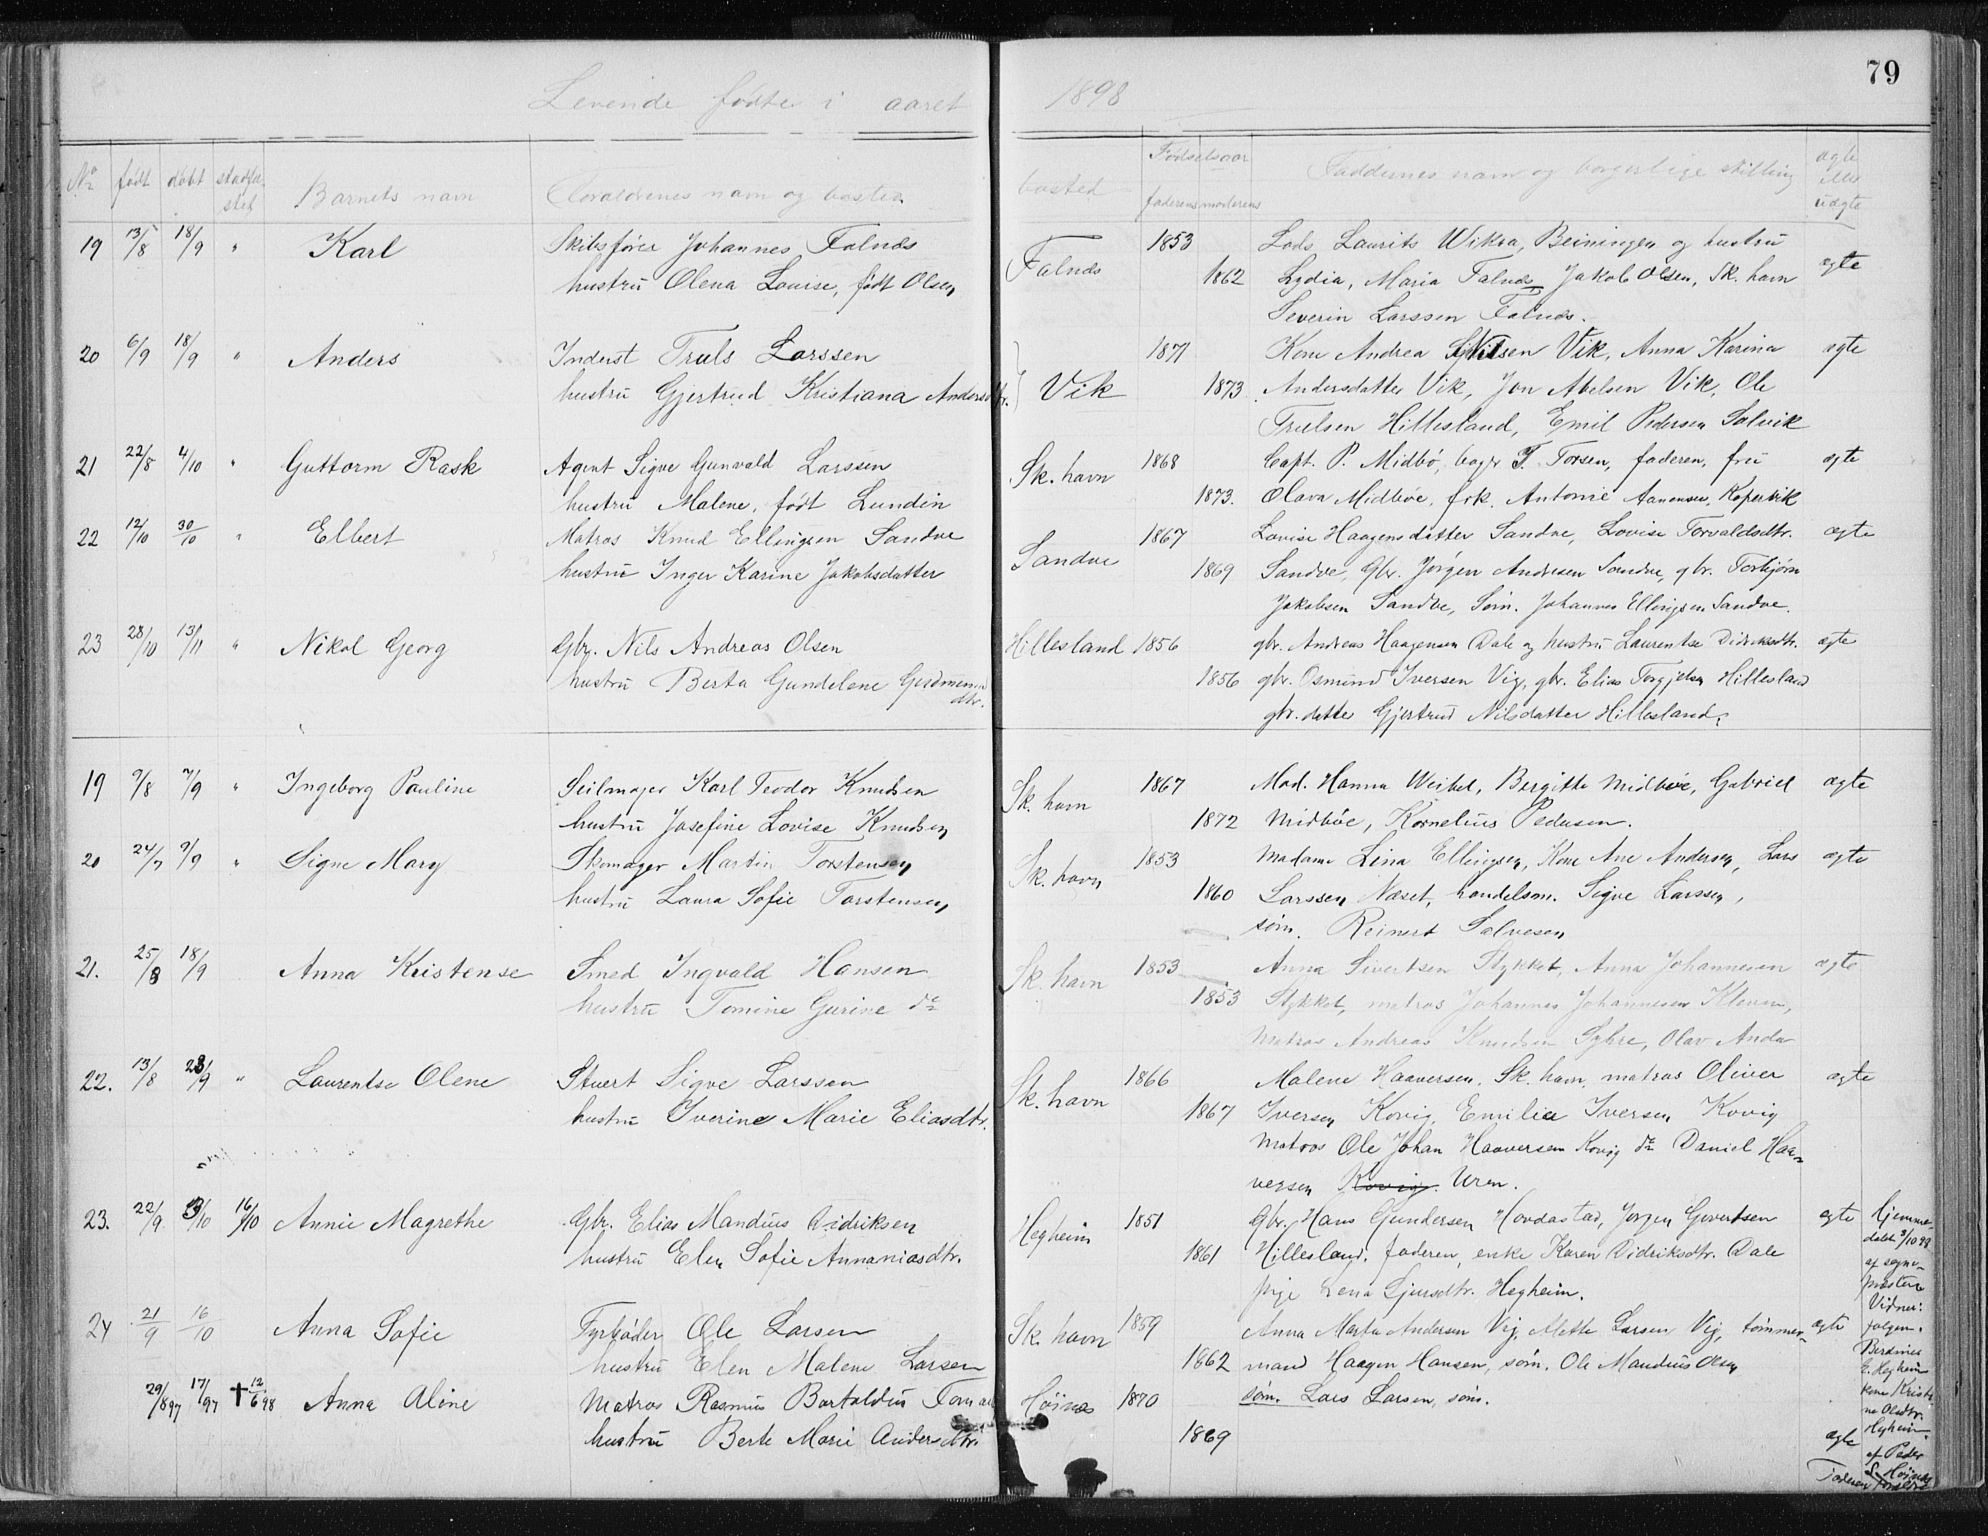 79
Levende fødte i aaret 1898
No født døbt stadfæstet Barnets navn Forældrenes navn og bosted bosted Fødselsaar faderens moderens Faddernes navn og borgerlige stilling ægte eller uægte
19 13/8 18/9 " Karl Skibsfører Johannes Falnæs Falnæs 1853 Lods Laurits Wikra, Beiningen og hustru ægte
hustru Olena Louise, født Olsen 1862 Lydia, Maria Falnæs, Jakob Olsen, Sk. havn
Severin Larssen Falnæs.
20 6/9 18/9 " Anders Inderst Truls Larssen Vik 1871 Kone Andrea Nilsen Vik, Anna Karina ægte
hustru Gjertrud Kristiana Andersdtr. 1873 Andersdatter Vik, Jon Abelsen Vik, Ole
Trulsen Hillesland, Emil Pedersen Solvik
21 22/8 4/10 " Guttorm Rask Agent Sigve Gunvald Larssen Sk. havn 1868 Capt. P. Midbø, bager T. Torsen, faderen, fru ægte
hustru Malene, født Lundin 1873. Olava Midbøe, frk. Antonie Aanensen, Kopervik
22 12/10 30/10 " Elbert Matros Knud Ellingsen Sandve Sandve 1867 Lovise Haagensdatter Sandve, Lovise Torvaldsdtr. ægte
hustru Inger Karine Jakobsdatter 1869 Sandve, Gbr. Jørgen Andresen Sandve, gbr. Torbjørn
Jakobsen Sandve, Søm. Johannes Ellingsen Sandve.
23 28/10 13/11 " Nikol Georg Gbr. Nils Andreas Olsen Hillesland 1856 gbr. Andreas Haagensen Dale og hustru Laurentse Didriksdtr. ægte
hustru Berta Gundelene 1856 gbr. Osmund Iversen Vig, gbr. Elias Torgjelsen Hillesland
dtr. gbr. datter Gjertrud Nilsdatter Hillesland.
19 9/8 7/9 " Ingeborg Pauline Seilmager Karl Teodor Knudsen Sk. havn 1867 Mad. Hanna Weibel, Bergitte Midbøe, Gabriel ægte
hustru Josefine Lovise Knudsen 1872 Midbøe, Kornelius Pedersen.
20 24/7 9/9 " Signe Mary Skomager Martin Torstensen Sk. havn 1853 Madame Lina Ellingsen, Kone Ane Andersen, Lars ægte
hustru Laura Sofie Torstensen 1860 Larssen Næset, handelsm. Sigve Larssen,
søm. Reinert Salvesen
21. 25/8 18/9 Anna Kristense Smed Ingvald Hansen Sk. havn 1853 Anna Sivertsen Stykket, Anna Johannesen ægte
hustru Tomine Gurine do 1853 Stykket, matros Johannes Johannesen Kleven,
Matros Andreas Knudsen Syhre, Olav Anda
22. 13/8 /9 " Laurentse Olene Stuert Sigve Larssen Sk. havn 1866 Malene Haaversen, Sk. havn, matros Oliver ægte
hustru Iverine Marie Eliasdtr. 1867 Iversen Kovig, Emilie Iversen Kovig
Matros Ole Johan Haaversen Kovig do Daniel Haa-
versen Kovig. Uren.
23. 22/9 3/10 16/10 Annie Magrethe Gbr. Elias Mandius Didriksen Hegheim 1851 Gbr. Hans Gundersen Hovdastad, Jørgen Govertsen ægte Hjemme-
hustru Elen Sofie Annaniasdtr. 1861 Hillesland, faderen, enke Karen Didriksdtr. Dale døbt 3/10 98
pige Lena Sjursdtr. Hegheim. af sogne-
præsten
Vidner:
24 21/9 16/10 Anna Sofie Fyrbøder Ole Larsen Sk. havn 1859 Anna Marta Andersen Vig, Mette Larsen Vig, tømmer- ægte
hustru Elen Malene Larsen 1862 mand Haagen Hansen, søm. Ole Mandius Olsen
29/8 97 17/ 97 † 12/6 98 Anna Aline Matros Rasmus Bartoldus Høines 1870 søm. Lars Larsen, søm.
hustru Berte Marie Andersdtr. 1869 ægte
E. Hegheim
kone Kristi-
ne Olsdtr.
Hegheim.
af Peder